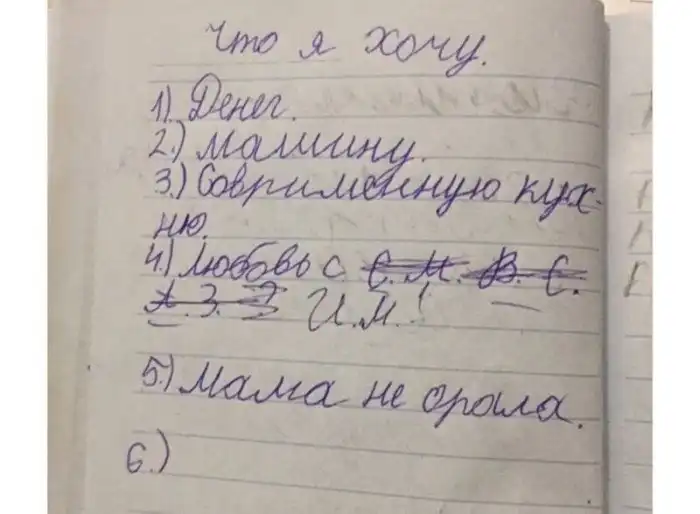 Что я хочу.
1). Денег.
2.) машину.
3.) Совришенную кух-
ню.
4.) Любовь с С. М. В. С.
А. З. И.М.!
5.) Мама не орала.
6.)